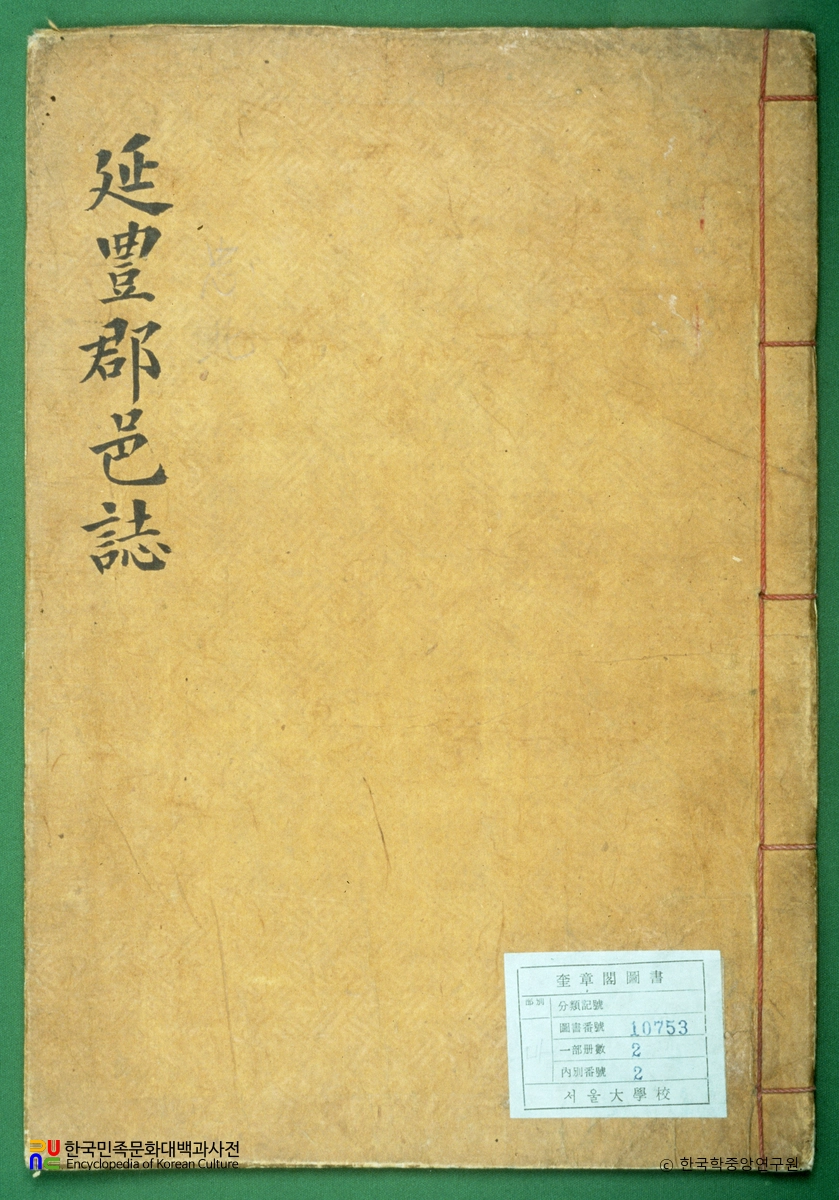 延豊郡邑誌
奎章閣圖書
部別
分類記號
圖書番號 10753
一部册數 2
內別番號 2
서울大學校
한국민족문화대백과사전
Encyclopedia of Korean Culture
ⓒ 한국학중앙연구원